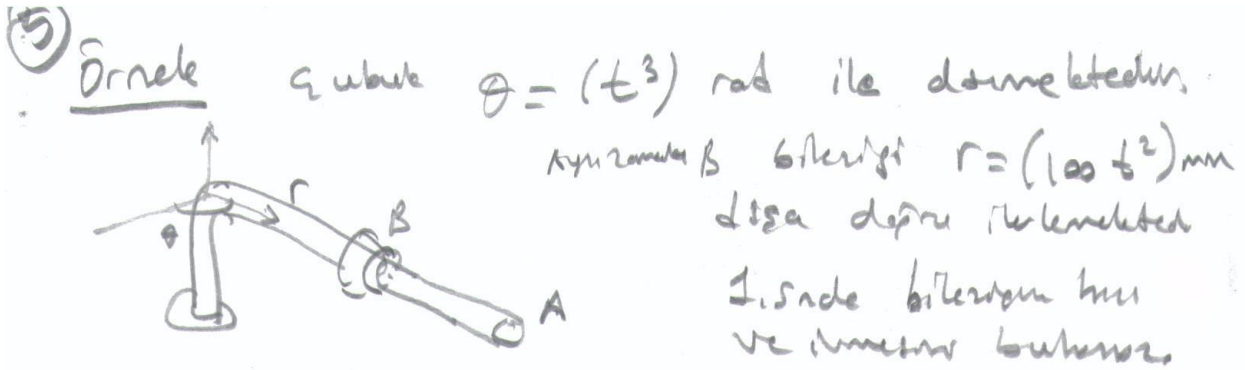 5
Örnek çubuk θ = (t³) rad ile dönmektedir.
Aynı zamanda B bileziği r = (100 t²) mm
dışa doğru ilerlemekted
1. snde bileziğin hızı
ve ivmesini bulunuz.
r
B
θ
A